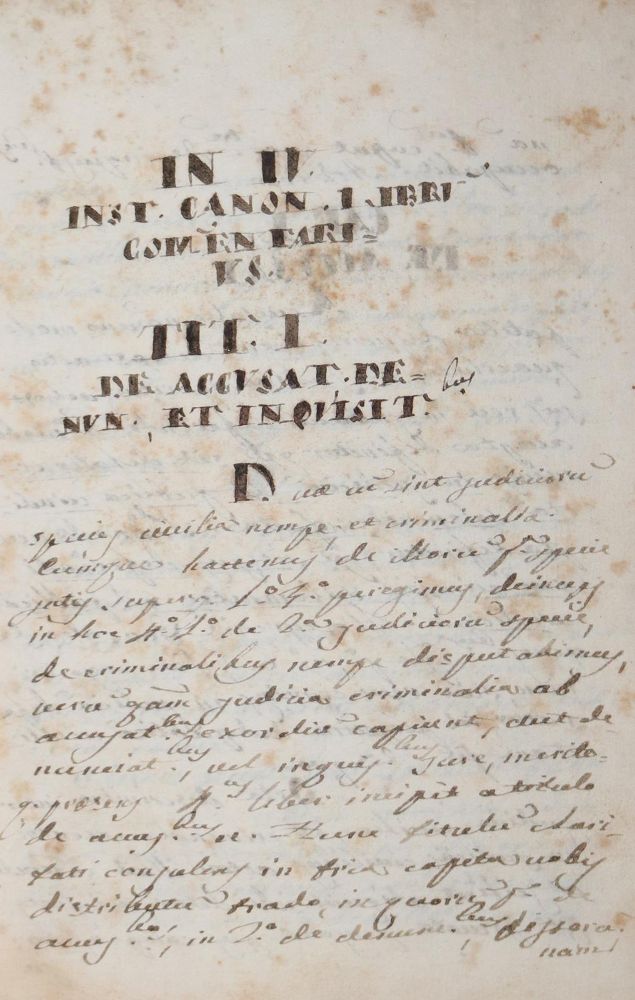 IN IV.
INST. CANON. LIBRV
COM̄ENTARI=
VS.
TIT. I.
DE ACCVSAT. DE= bus
NUN. ET INQUISIT.
Duæ cū sint judiciorū
species civilia nempe, et criminalia.
Cumque hactenus de illorū pᵃ specie
superᵒ Lᵒ 4.ᵒ peregimus, deinceps
in hoc 4.ᵒ Lᵒ de 2.ᵃ judiciorū specie,
de criminalibus nempe disputabimus,
verū quam judicia criminalia ab
acusat.bus exordiū capiunt, aut de
nunciat.bus, vel inquis.bus jure, merito-
q. præsens 4us liber incipit a titulo
de acus.bus et. Hunc titulū clari-
tati consulens in tria capita vobis
distributū trado, in quorū pᵒ de
acus.bus, in 2.ᵒ de denunc.bus dissera
nam